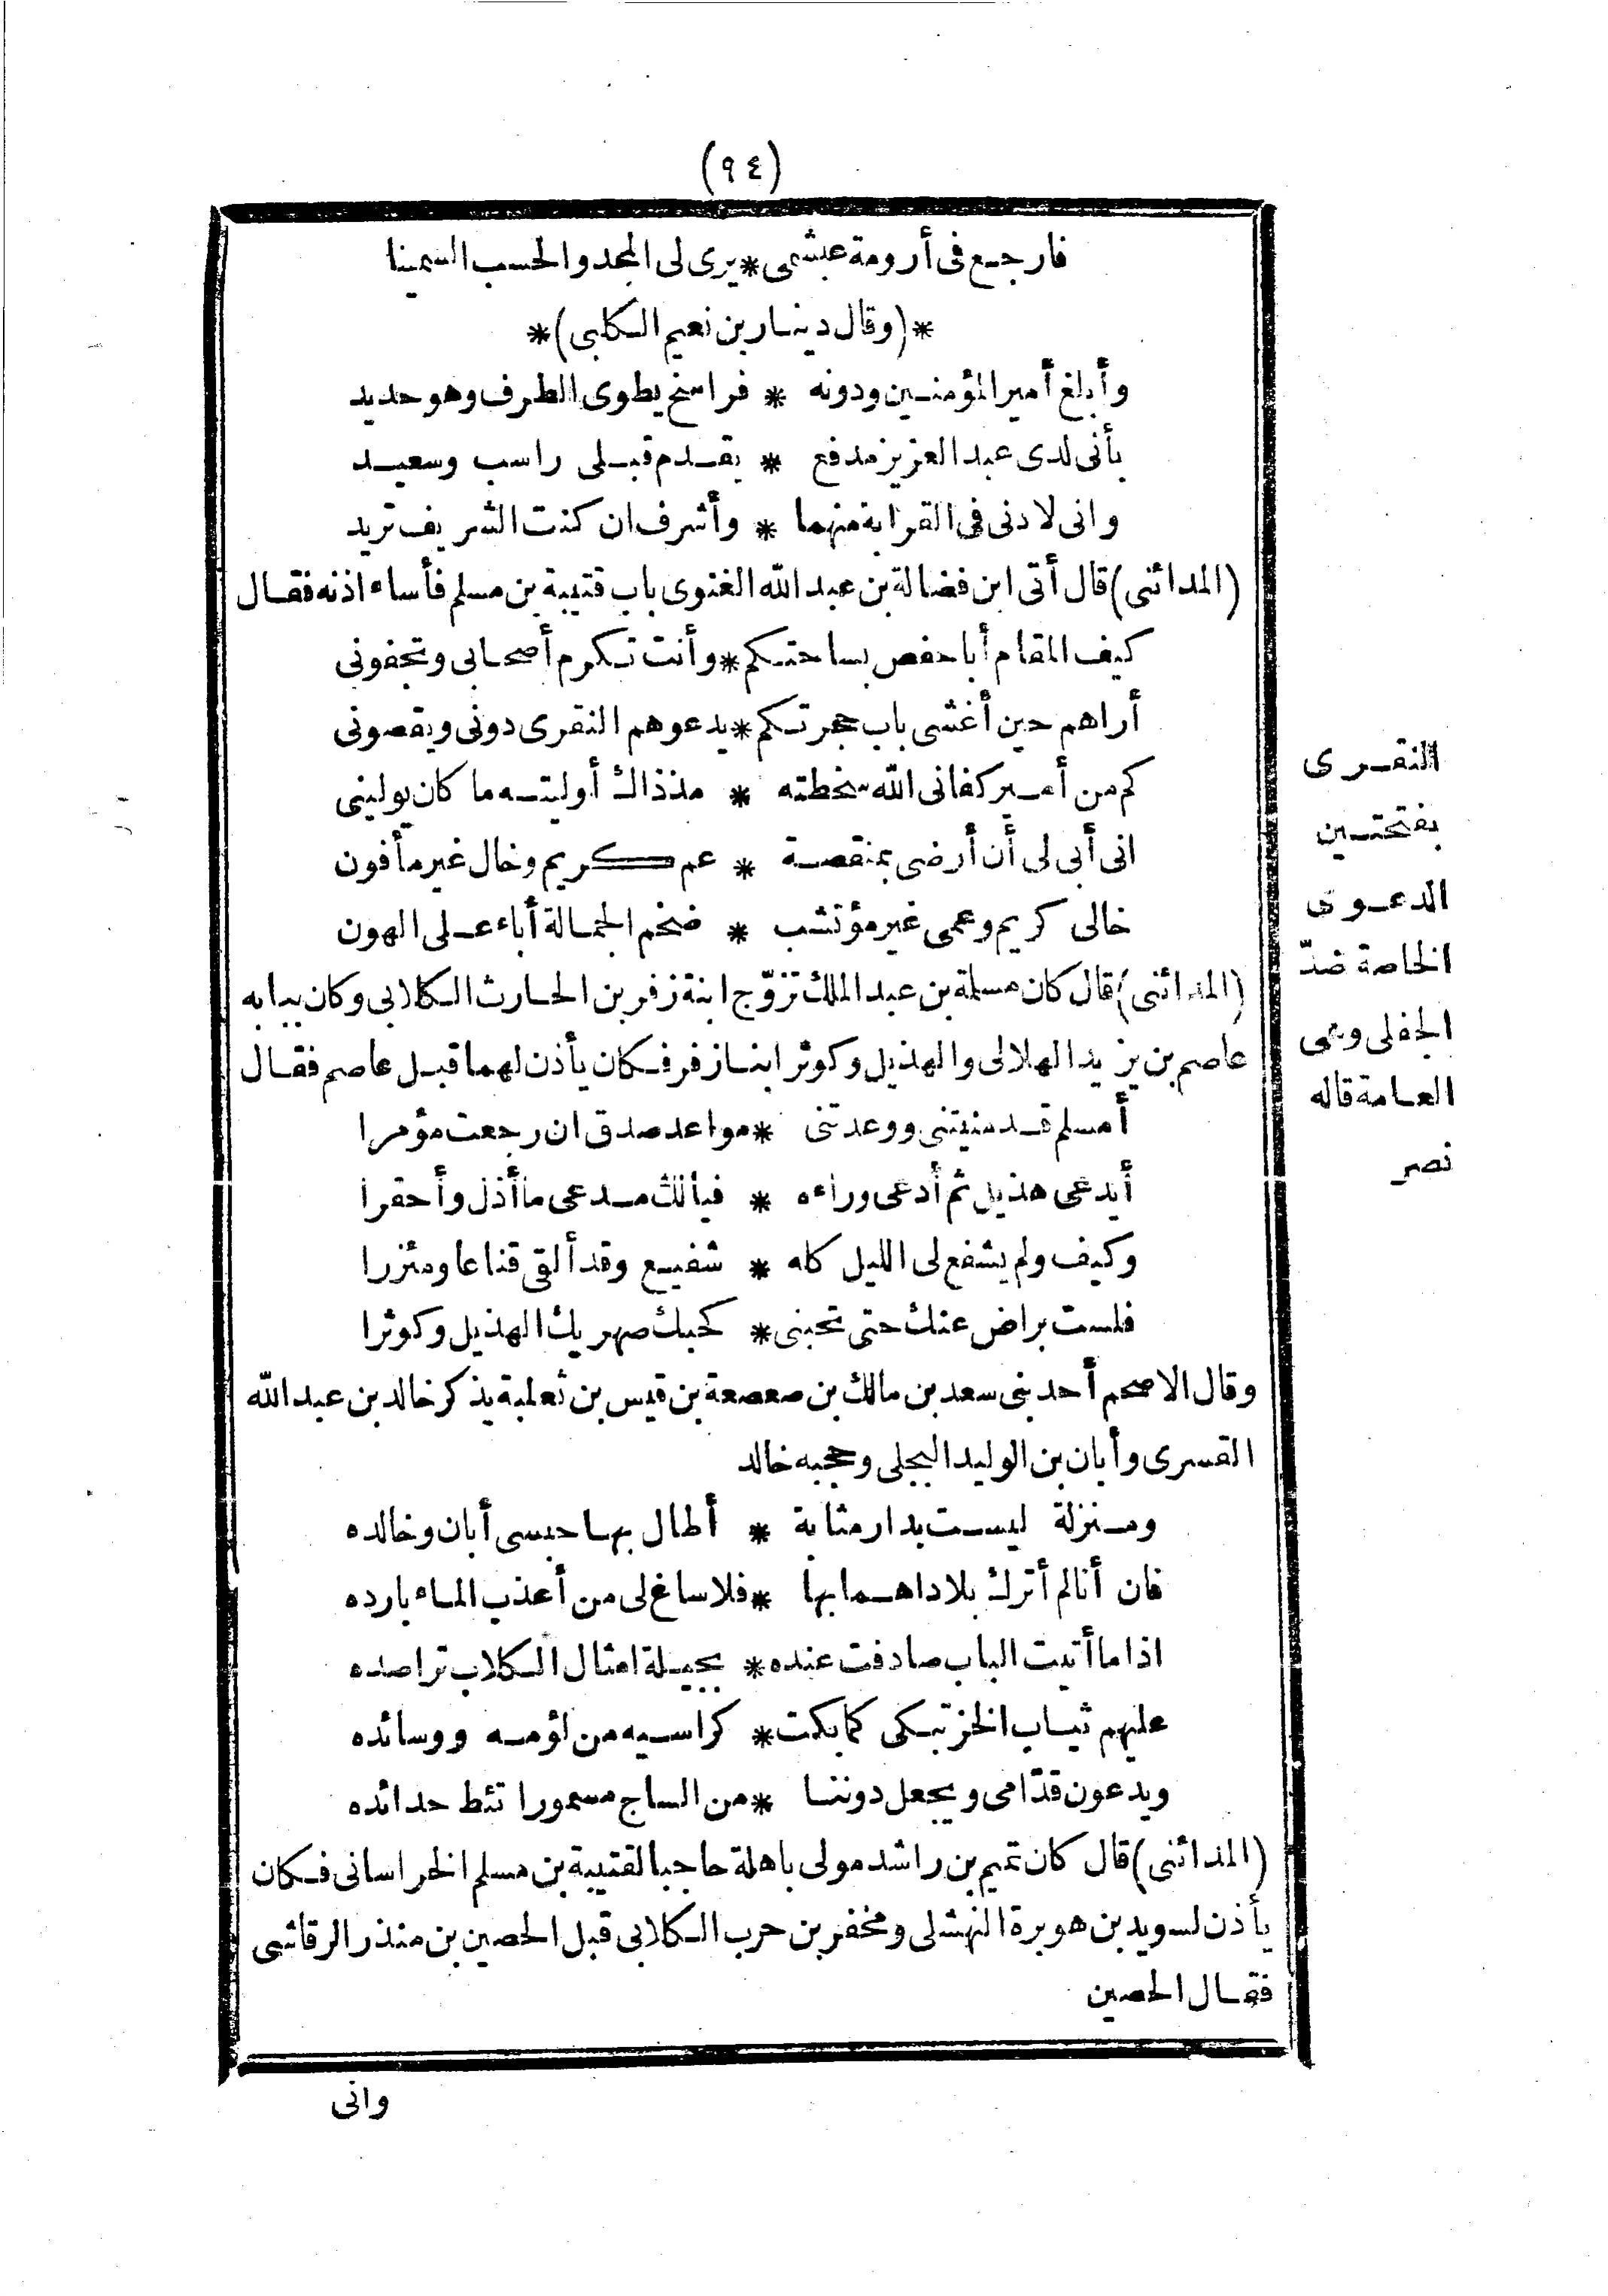 (٩٤)
فارجع فى أرومة عبشمى * يرى لى المجد والحسب السمينا
*(وقال دينار بن نعيم الكلبى)*
وأبلغ أمير المؤمنين ودونه * فراسخ يطوى الطرف وهو حديد
بأنى لدى عبد العزيز مدفع * يقدم قبلى راسب وسعيد
وانى لادنى فى القرابة منهما * وأشرف ان كنت الشريف تريد
(المدائنى) قال أتى ابن فضالة بن عبد الله الغنوى باب قتيبة بن مسلم فأساء اذنه فقال
كيف المقام أبا حفص بساحتكم * وأنت تكرم أصحابى وتجفونى
أراهم حين أغشى باب حجرتكم * يدعوهم النقرى دونى ويقصونى
كم من أمير كفانى الله سخطته * مذذاك أوليته ما كان يولينى
انى أبى لى أن أرضى بمنقصة * عم كريم وخال غير مأفون
خالى كريم وعمى غير مؤتشب * ضخم الحمالة أباء على الهون
(المدائنى) قال كان مسلمة بن عبد الملك تزوّج ابنة زفر بن الحارث الكلابى وكان ببابه
عاصم بن يزيد الهلالى والهذيل وكوثر ابنا زفر فكان يأذن لهما قبل عاصم فقال
أمسلم قد منيتنى ووعدتنى * مواعد صدق ان رجعت مؤمرا
أيدعى هذيل ثم أدعى وراءه * فيالك مدعى ما أذل وأحقرا
وكيف ولم يشفع لى الليل كله * شفيع وقد ألقى قناعا ومئزرا
فلست براض عنك حتى تحبنى * كحبك صهريك الهذيل وكوثرا
وقال الاصحم أحد بنى سعد بن مالك بن صعصعة بن قيس بن ثعلبة يذكر خالد بن عبد الله
القسرى وأبان بن الوليد البجلى وحجبه خالد
ومنزلة ليست بدار مثابة * أطال بها حبسى أبان وخالده
فان أنا لم أترك بلادا هما بها * فلا ساغ لى من أعذب الماء بارده
اذا ما أتيت الباب صادفت عنده * بجيلة امثال الكلاب تراصده
عليهم ثياب الخز تبكى كما بكت * كراسيه من لؤمه ووسائده
ويدعون قدّامى ويجعل دوننا * من الساج مسمورا تئط حدائده
(المدائنى) قال كان تميم بن راشد مولى باهلة حاجبا لقتيبة بن مسلم الخراسانى فكان
يأذن لسويد بن هوبرة النهشلى ومخفر بن حرب الكلابى قبل الحصين بن منذر الرقاشى
فقال الحصين
وانى
النقرى
بفتحتين
الدعوى
الخاصة ضدّ
الجفلى وهى
العامة قاله
نصر